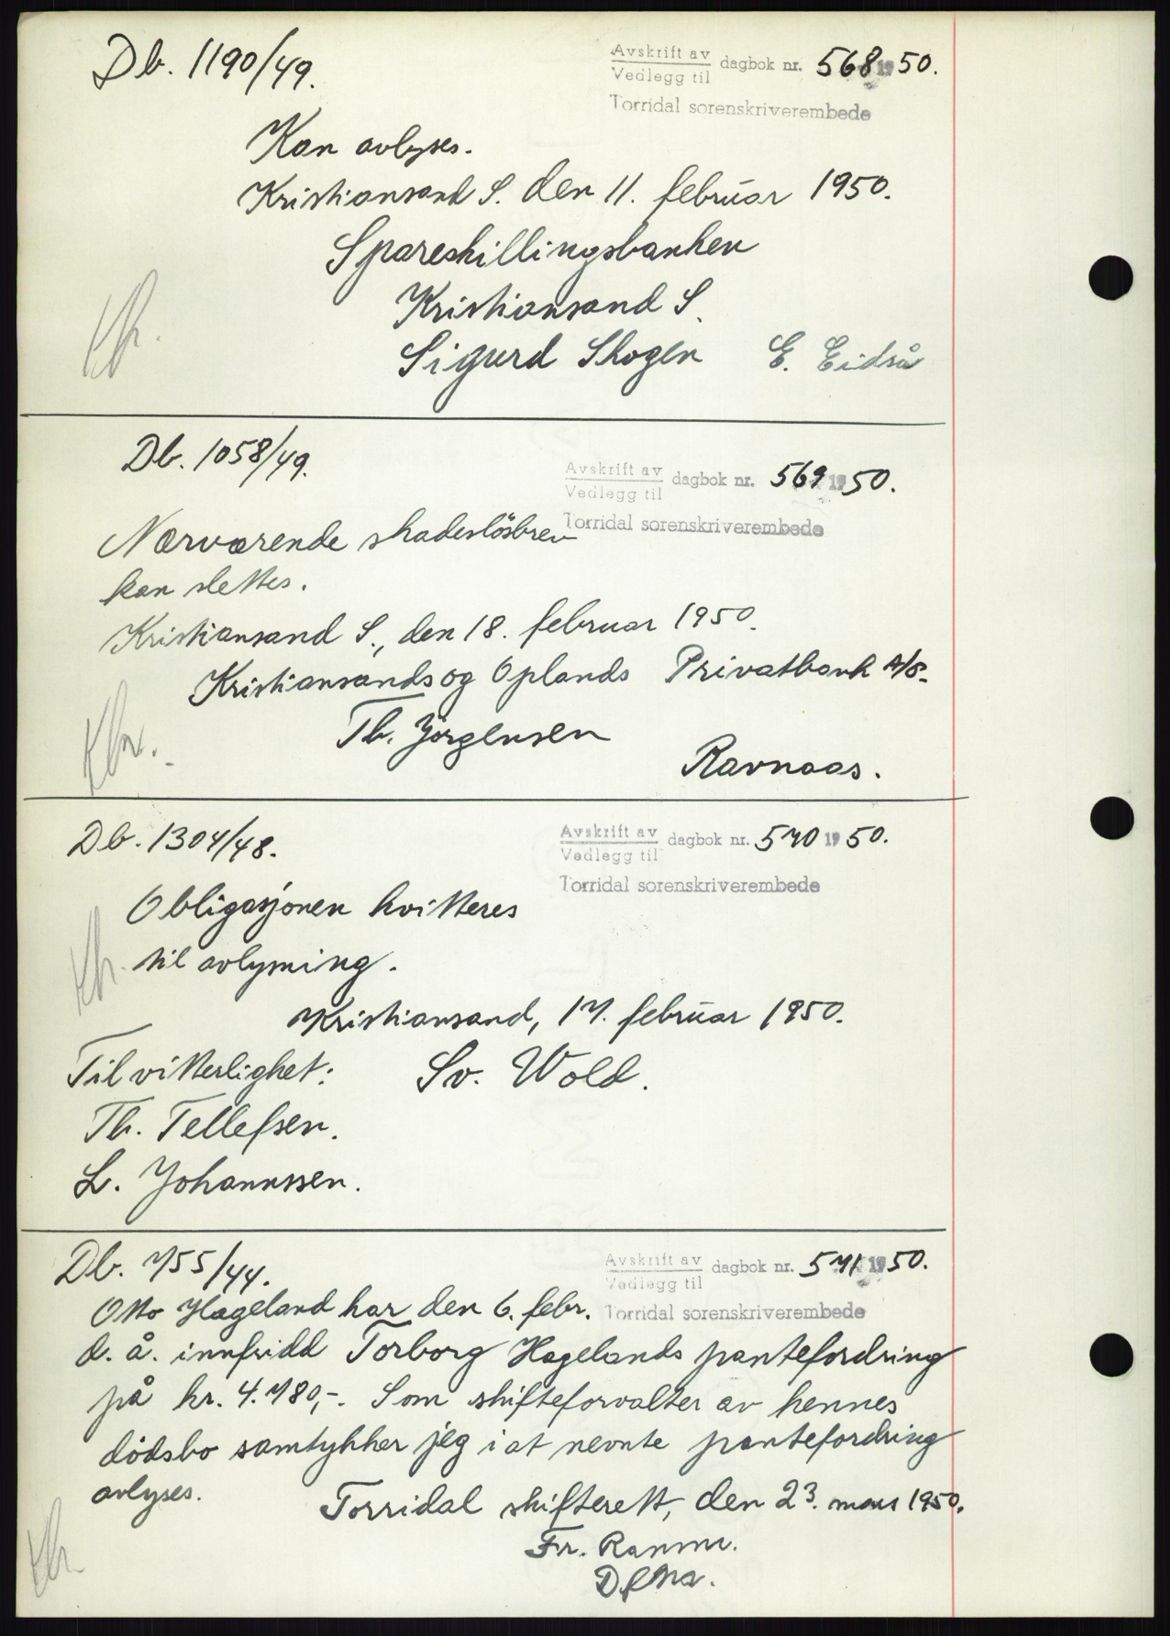 Db. 1190/49.
Avskrift av
Vedlegg til
dagbok nr. 568 1950.
Torridal sorenskriverembede
Kan avlyses.
Kristiansand S. den 11. februar 1950.
Spareskillingsbanken
Kristiansand S.
Sigurd Skogen E. Eidså
Db. 1058/49.
Avskrift av
Vedlegg til
dagbok nr. 569 1950.
Torridal sorenskriverembede
Nærværende skadesløsbrev
kan slettes.
Kristiansand S., den 18. februar 1950.
Kristiansands og Oplands Privatbank A/S.
Th. Jörgensen
Ravnaas.
Db. 1304/48.
Avskrift av
Vedlegg til
dagbok nr. 570 1950.
Torridal sorenskriverembede
Obligasjonen kvitteres
til avlysning.
Kristiansand, 17. februar 1950.
Til vitterlighet: Sv. Wold.
Th. Tellefsen.
L. Johannssen.
Db. 755/44.
Avskrift av
Vedlegg til
dagbok nr. 571 1950.
Torridal sorenskriverembede
Otto Hageland har den 6. febr.
d. å. innfridd Torborg Hagelands pantefordring
på kr. 4.780,-. Som skifteforvalter av hennes
dödsbo samtykker jeg i at nevnte pantefordring
avlyses.
Torridal skifterett, den 23. mars 1950.
Fr.